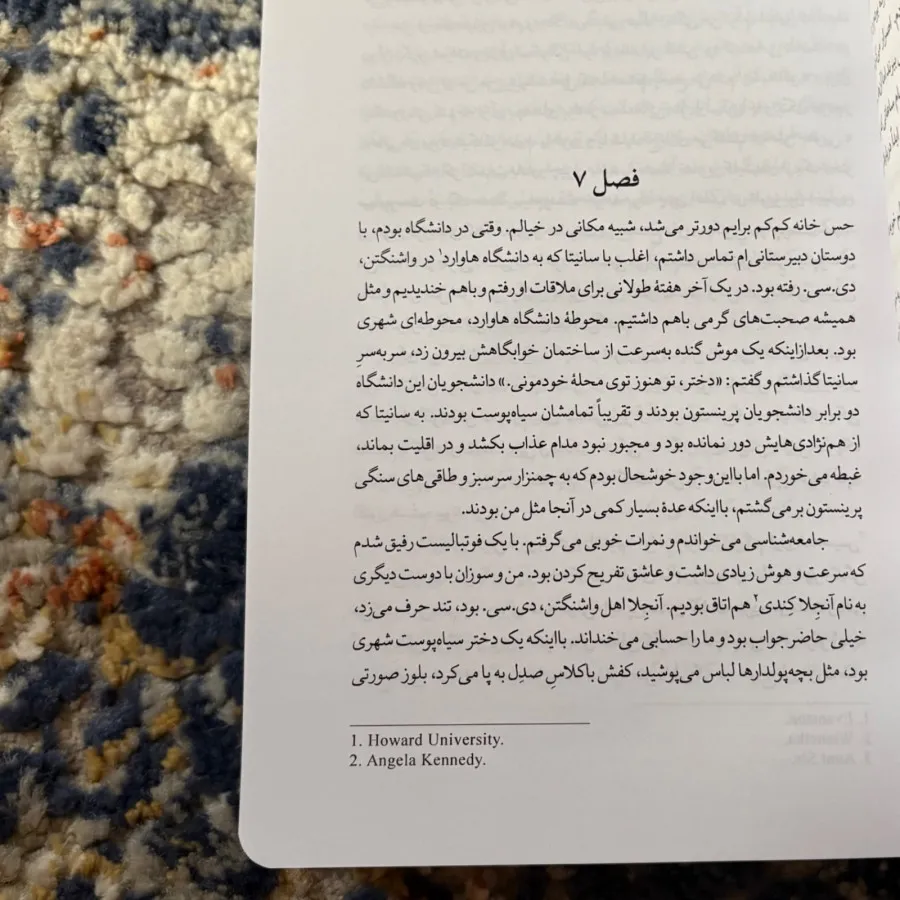 فصل ۷
حس خانه کم‌کم برایم دورتر می‌شد، شبیه مکانی در خیالم. وقتی در دانشگاه بودم، با
دوستان دبیرستانی‌ام تماس داشتم، اغلب با سانیتا که به دانشگاه هاوارد۱ در واشنگتن،
دی.سی. رفته بود. در یک آخر هفتهٔ طولانی برای ملاقات او رفتم و باهم خندیدیم و مثل
همیشه صحبت‌های گرمی باهم داشتیم. محوطهٔ دانشگاه هاوارد، محوطه‌ای شهری
بود. بعدازاینکه یک موش گنده به‌سرعت از ساختمان خوابگاهش بیرون زد، سربه‌سرِ
سانیتا گذاشتم و گفتم: «دختر، تو هنوز توی محلهٔ خودمونی.» دانشجویان این دانشگاه
دو برابر دانشجویان پرینستون بودند و تقریباً تمامشان سیاه‌پوست بودند. به سانیتا که
از هم‌نژادی‌هایش دور نمانده بود و مجبور نبود مدام عذاب بکشد و در اقلیت بماند،
غبطه می‌خوردم. اما بااین‌وجود خوشحال بودم که به چمنزار سرسبز و طاقی‌های سنگی
پرینستون برمی‌گشتم، بااینکه عدهٔ بسیار کمی در آنجا مثل من بودند.
جامعه‌شناسی می‌خواندم و نمرات خوبی می‌گرفتم. با یک فوتبالیست رفیق شدم
که سرعت و هوش زیادی داشت و عاشق تفریح کردن بود. من و سوزان با دوست دیگری
به نام آنجلا کِندی۲ هم‌اتاق بودیم. آنجِلا اهل واشنگتن، دی.سی. بود، تند حرف می‌زد،
خیلی حاضرجواب بود و ما را حسابی می‌خنداند. بااینکه یک دختر سیاه‌پوست شهری
بود، مثل بچه‌پولدارها لباس می‌پوشید، کفش باکلاسِ صدِل به پا می‌کرد، بلوز صورتی
1. Howard University.
2. Angela Kennedy.